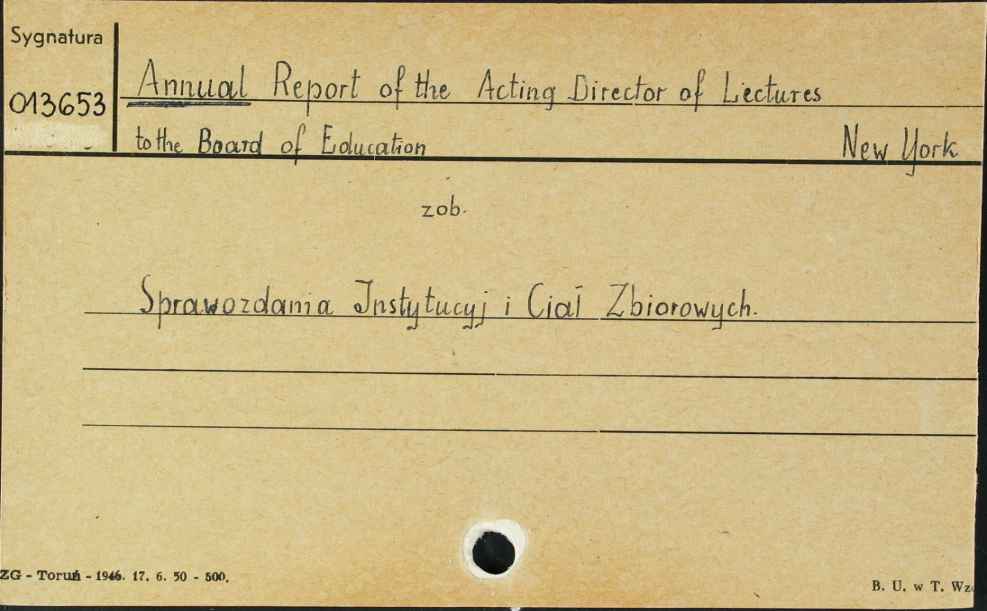 Sygnatura
013653
Annual Report of the Acting Director of Lectures
to the Board of Education New York
zob.
Sprawozdania Instytucyj i Ciał Zbiorowych.
ZG - Toruń - 1946. 17. 6. 50 - 500.
B. U. w T. Wzó